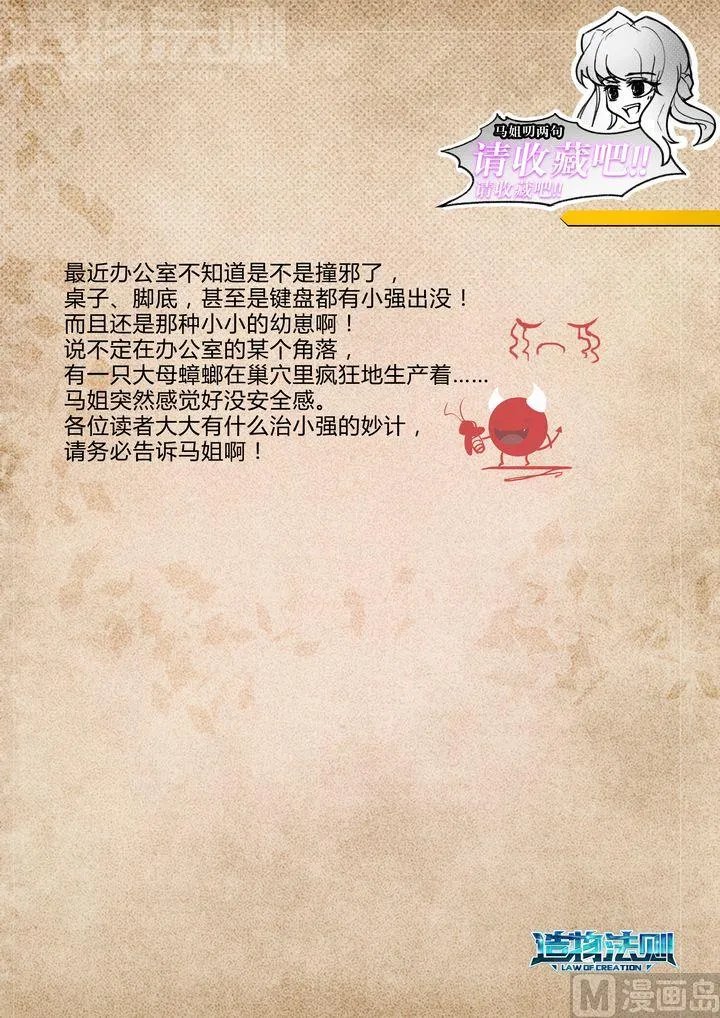 造物法则
马姐叨两句
请收藏吧!!
请收藏吧!!
最近办公室不知道是不是撞邪了，
桌子、脚底，甚至是键盘都有小强出没！
而且还是那种小小的幼崽啊！
说不定在办公室的某个角落，
有一只大母蟑螂在巢穴里疯狂地生产着……
马姐突然感觉好没安全感。
各位读者大大有什么治小强的妙计，
请务必告诉马姐啊！
造物法则
LAW OF CREATION
M 漫画岛